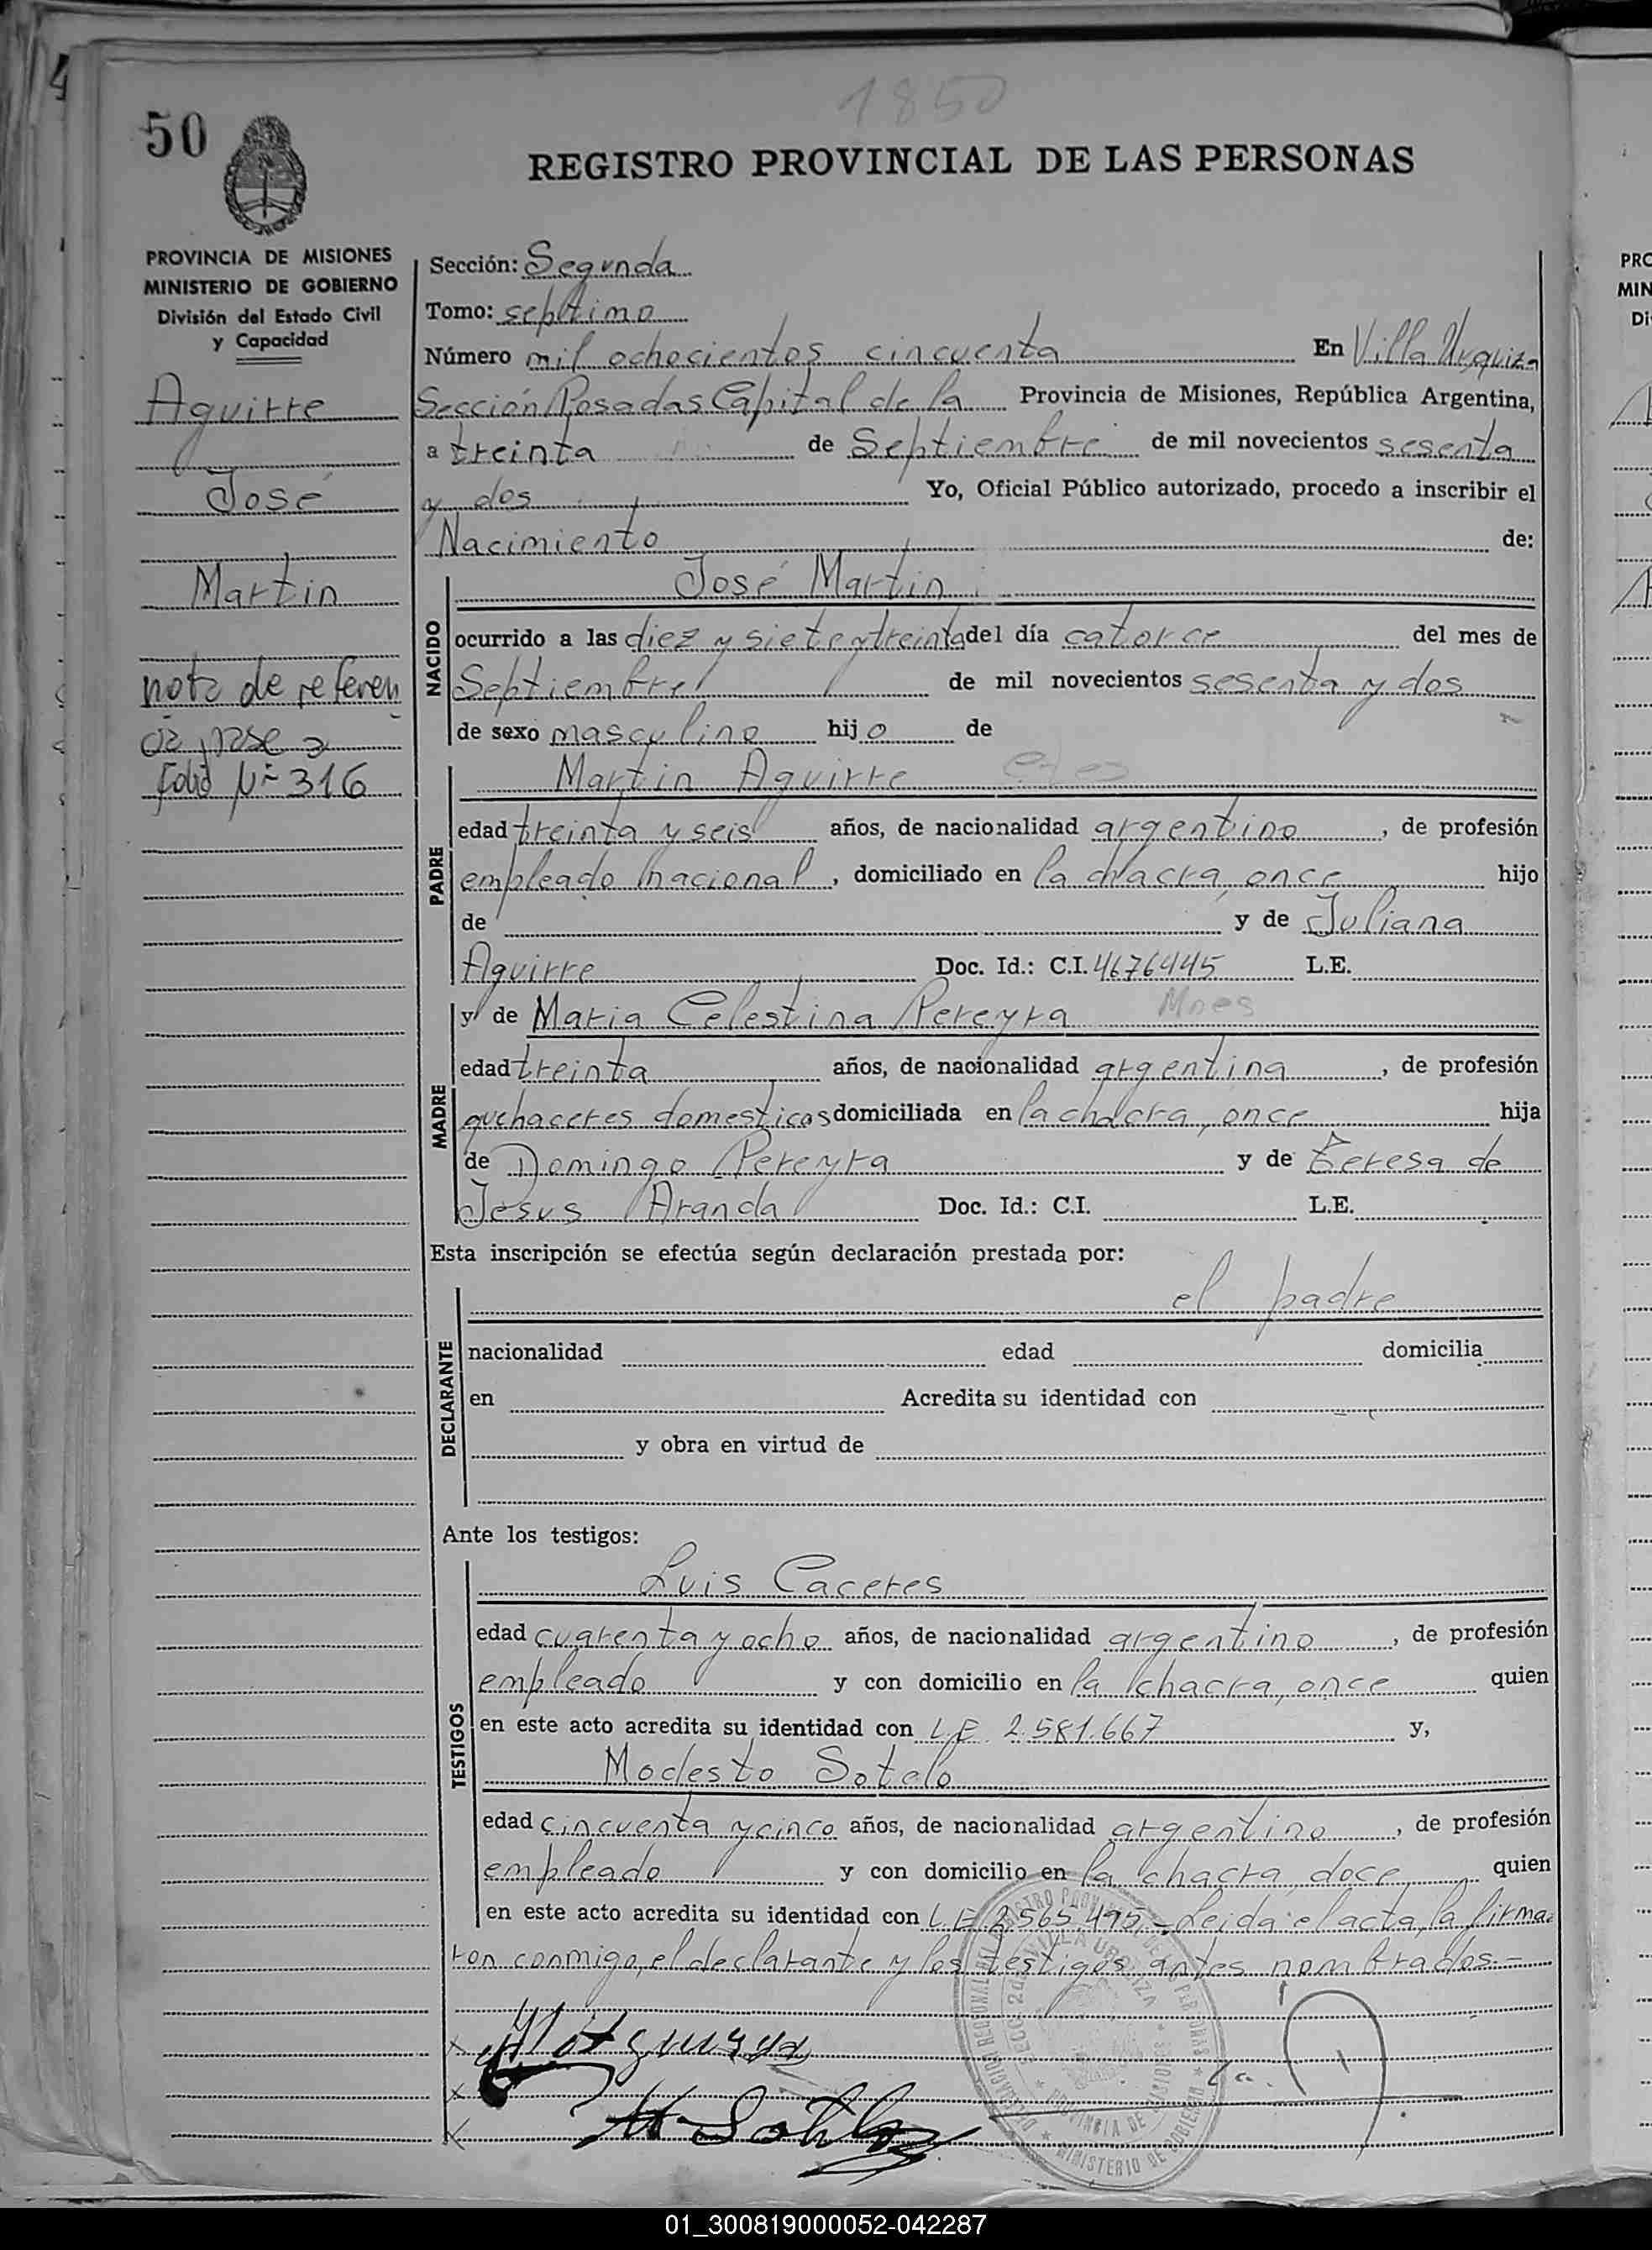 1850
50
REGISTRO PROVINCIAL DE LAS PERSONAS
PROVINCIA DE MISIONES
MINISTERIO DE GOBIERNO
División del Estado Civil
y Capacidad
Aguirre
José
Martin
nota de referen
cia pase a
folio Nº 316
Sección: Segunda
Tomo: septimo
Número mil ochocientos cincuenta En Villa Urquiza
Sección Posadas Capital de la Provincia de Misiones, República Argentina,
a treinta de Septiembre de mil novecientos sesenta
y dos Yo, Oficial Público autorizado, procedo a inscribir el
Nacimiento de:
NACIDO
José Martin
ocurrido a las diez y siete y treinta del día catorce del mes de
Septiembre de mil novecientos sesenta y dos
de sexo masculino hijo de
PADRE
Martin Aguirre
edad treinta y seis años, de nacionalidad argentino, de profesión
empleado nacional, domiciliado en la chacra once hijo
de y de Juliana
Aguirre Doc. Id.: C.I. 4676445 L.E.
MADRE
y de Maria Celestina Pereyra
edad treinta años, de nacionalidad argentina, de profesión
quehaceres domesticos domiciliada en la chacra, once hija
de Domingo Pereyra y de Teresa de
Jesus Aranda Doc. Id.: C.I. L.E.
Esta inscripción se efectúa según declaración prestada por:
DECLARANTE
el padre
nacionalidad edad domicilia
en Acredita su identidad con
y obra en virtud de
Ante los testigos:
TESTIGOS
Luis Caceres
edad cuarenta y ocho años, de nacionalidad argentino, de profesión
empleado y con domicilio en la chacra, once quien
en este acto acredita su identidad con L.E. 2.581.667 y,
Modesto Sotelo
edad cincuenta y cinco años, de nacionalidad argentino, de profesión
empleado y con domicilio en la chacra doce quien
en este acto acredita su identidad con L.E. 2.565.495.- Leida el acta, la firma
ron conmigo, el declarante y los testigos antes nombrados.=
PRO
MIN
Di
01_300819000052-042287